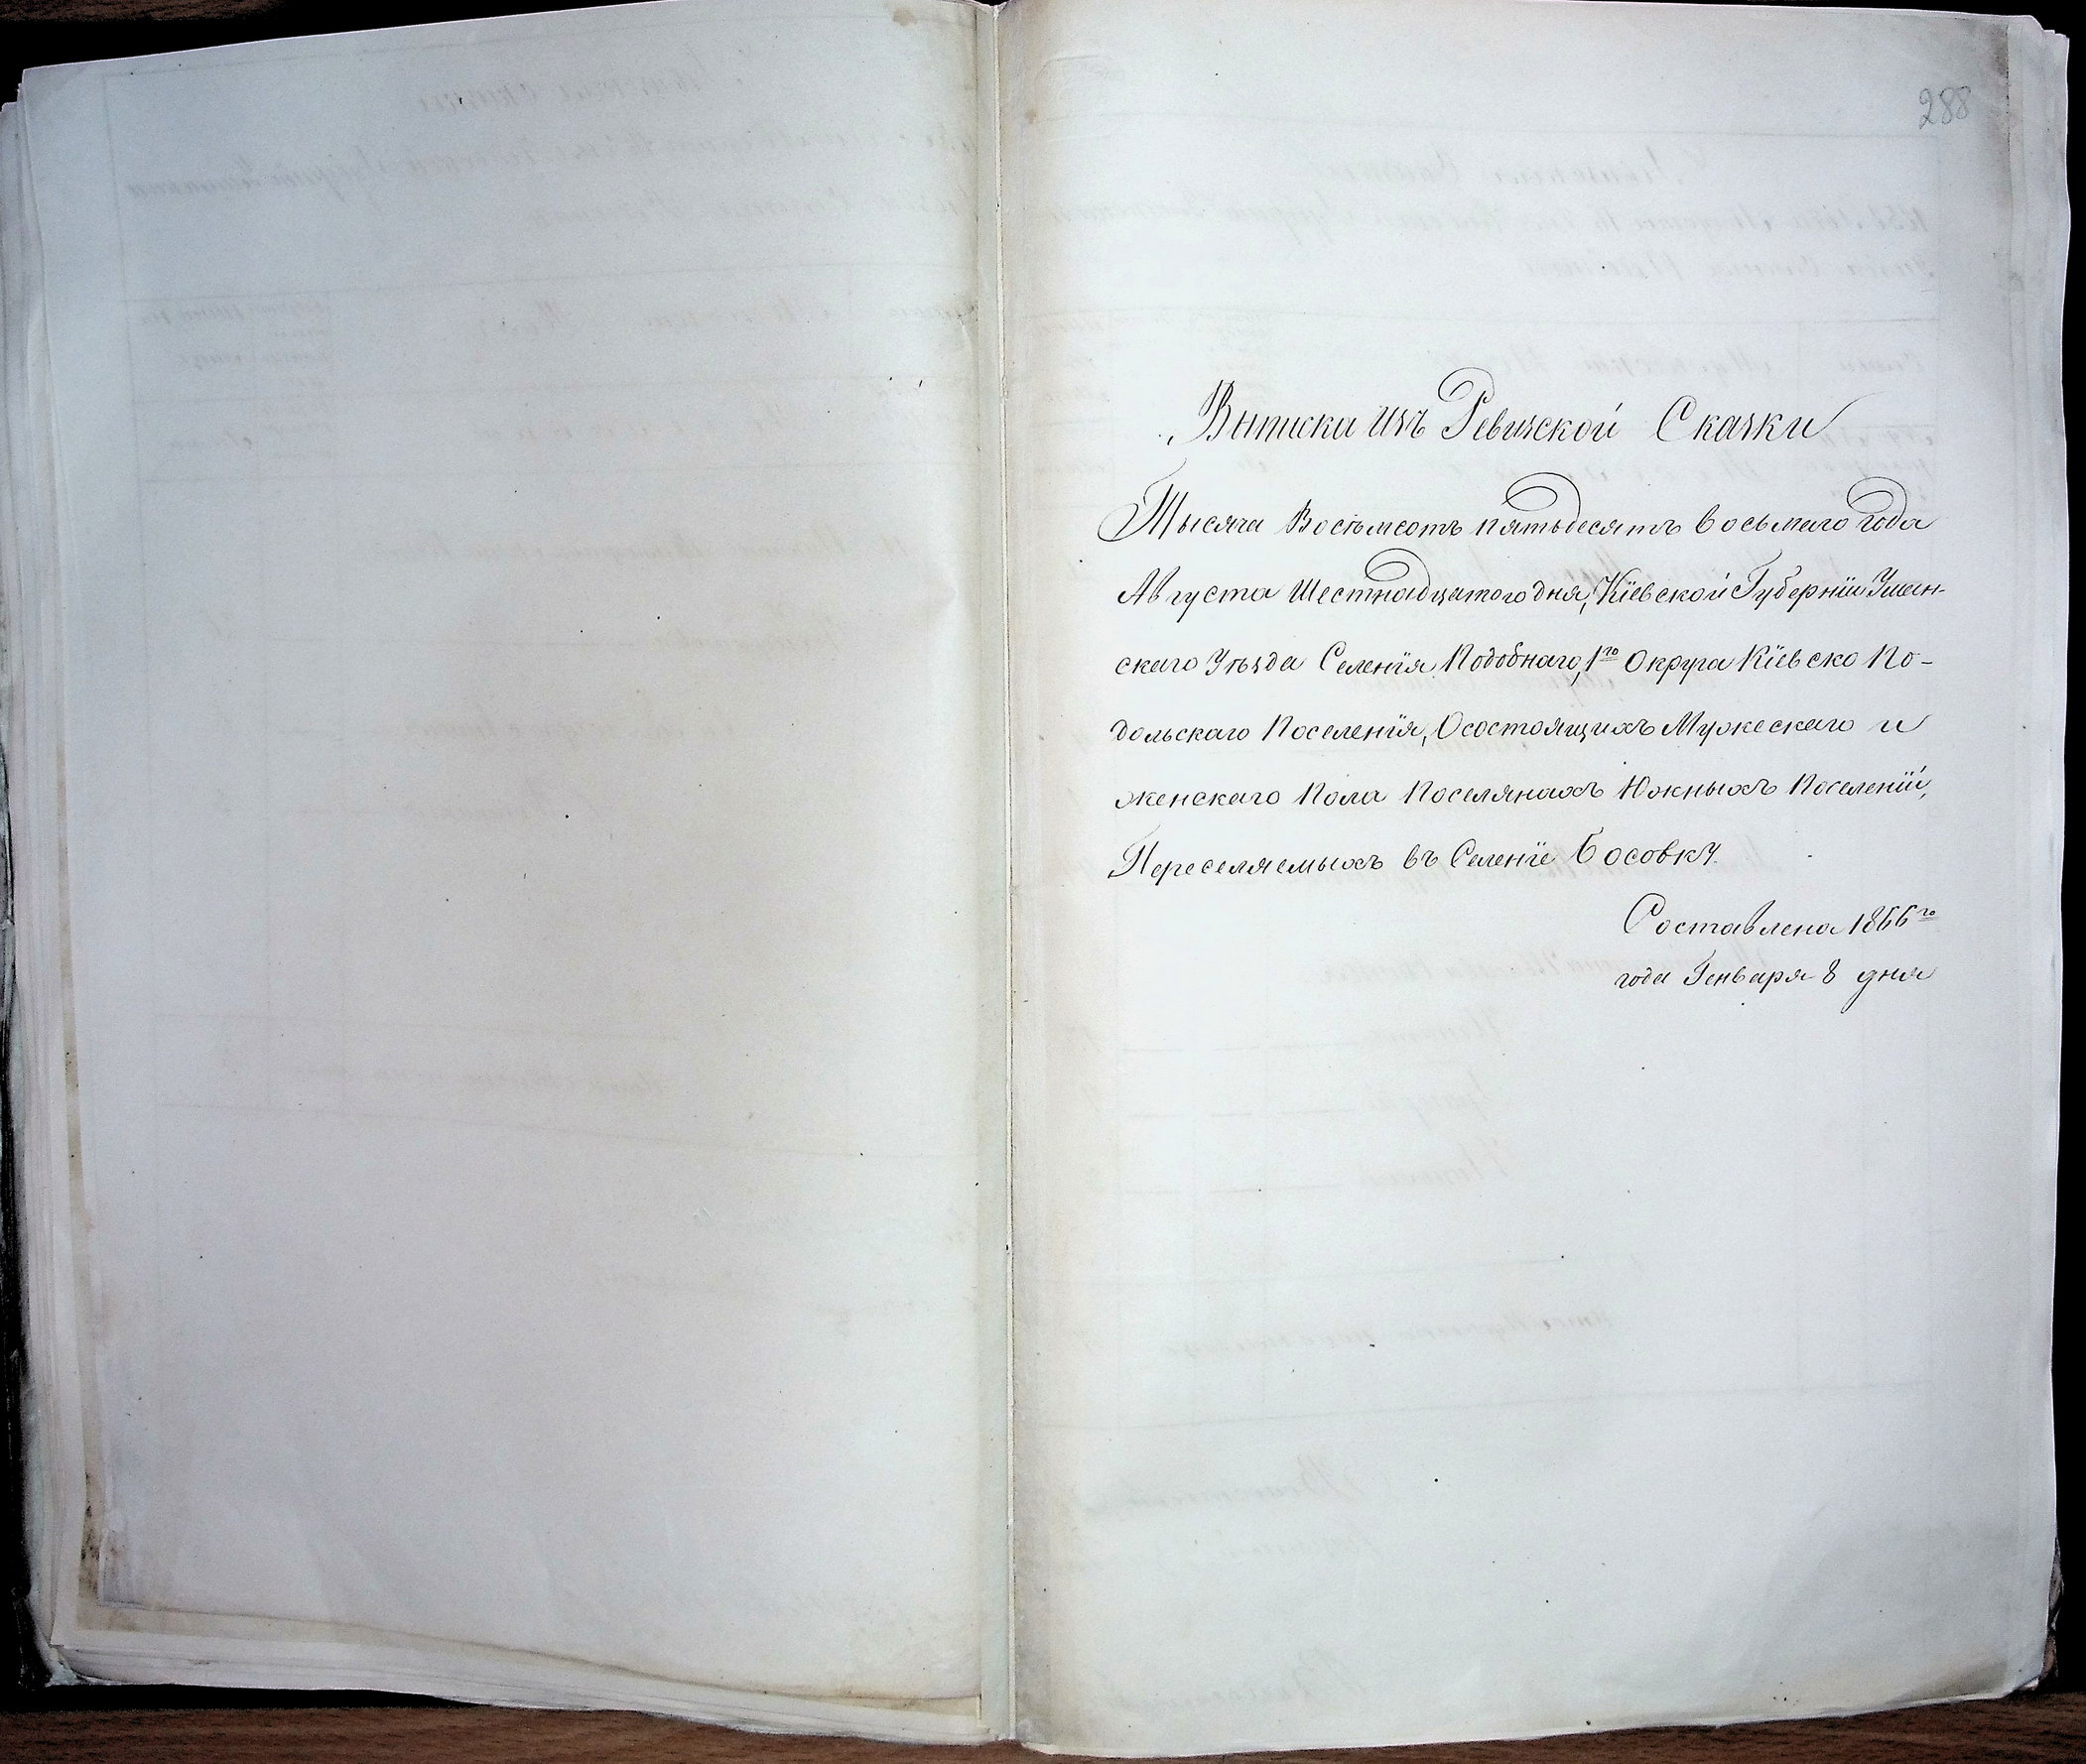 288
Выписка изъ Ревизской Сказки
Тысяча Восѣмсотъ пятьдесятъ восьмаго года
Августа Шестнадцатого дня, Кіевской Губерніи Уман-
скаго Уѣзда Селенія Подобнаго, 1го Округа Кіевско По-
дольскаго Поселенія, О состоящихъ Мужескаго и
женскаго Пола Поселянахъ Южныхъ Поселеній,
Переселяемыхъ въ Селеніе Босовку
Составлена 1866го
года Генваря 8 дня